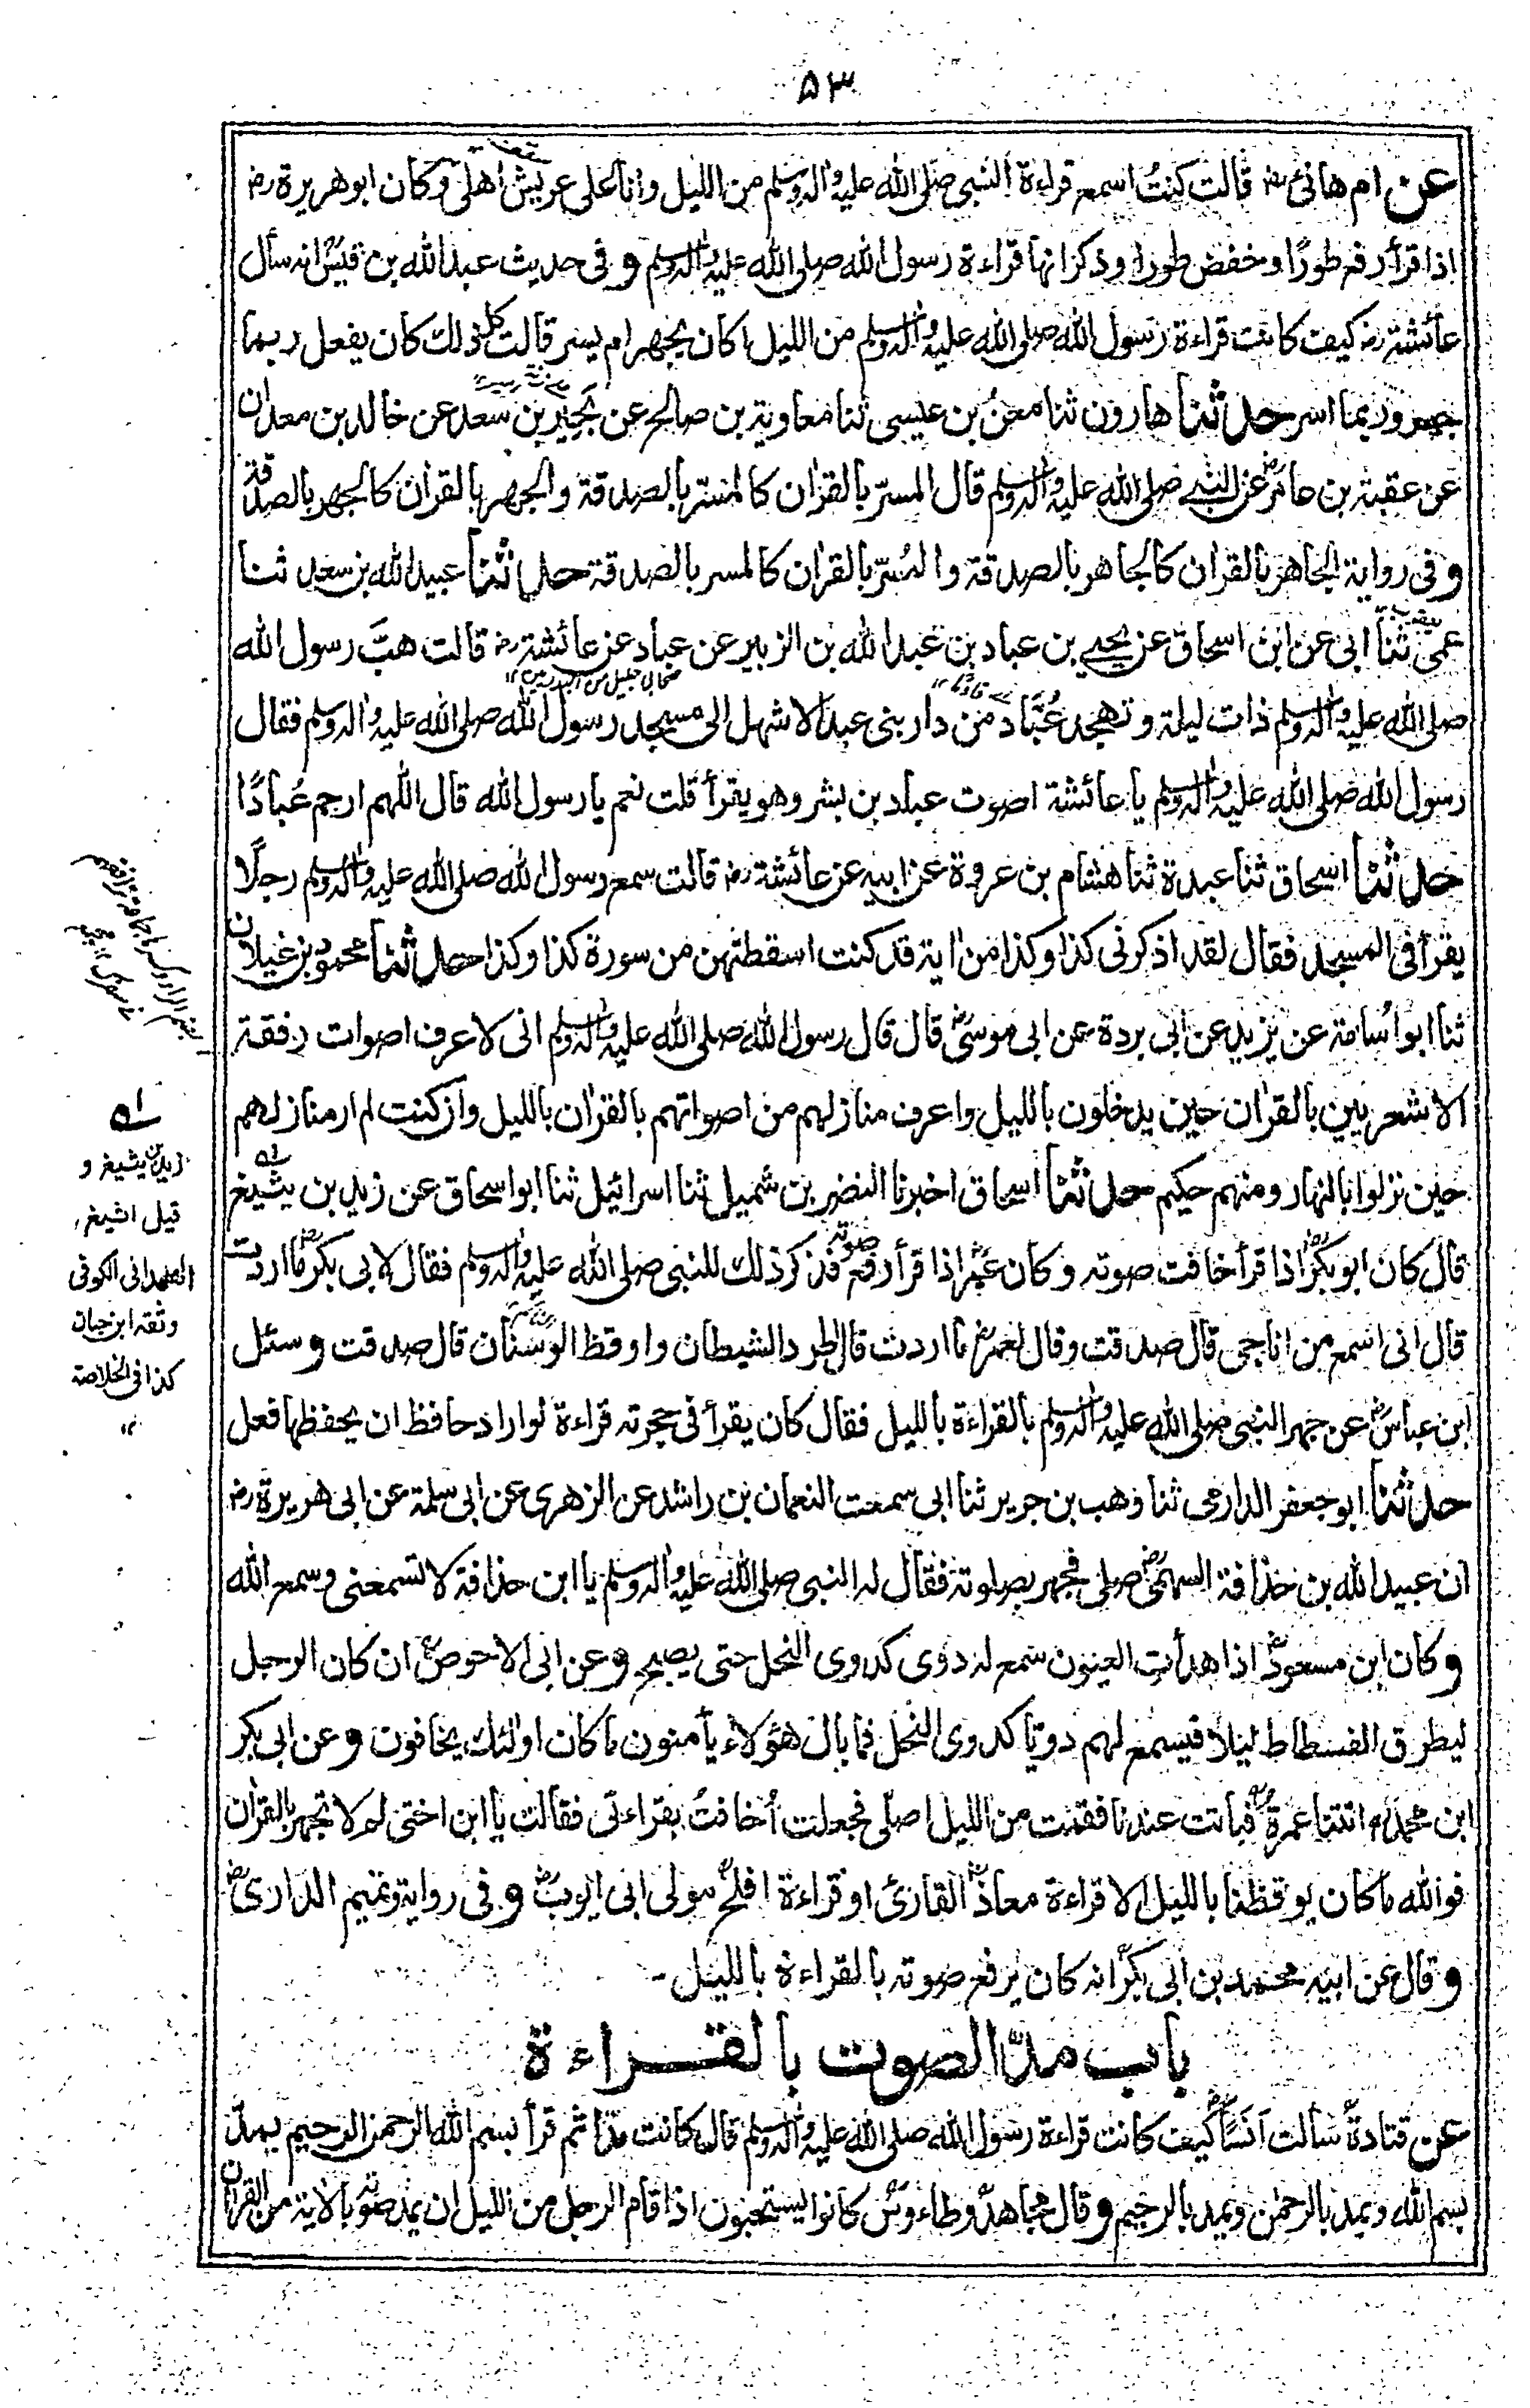 ۵۳
عن ام هانئ رض قالت كنتُ اسمع قراءة النبى صلى الله عليه واله وسلم من الليل وانا على عريش اهلى وكان ابو هريرة رض
اذا قرأ رفع طورًا وخفض طورا وذكر انها قراءة رسول الله صلى الله عليه واله وسلم و فى حديث عبد الله بن قيس انه سأل
عائشة رض كيف كانت قراءة رسول الله صلى الله عليه واله وسلم من الليل اكان يجهر ام يسر قالت كل ذلك كان يفعل ربما
جهر وربما اسر حدثنا هارون ثنا معن بن عيسى ثنا معاوية بن صالح عن بَحِير بن سعد عن خالد بن معدان
عن عقبة بن عامر رض عن النبى صلى الله عليه واله وسلم قال المسرّ بالقران كالمسرّ بالصدقة والجهر بالقران كالجهر بالصدقة
و فى رواية الجاهر بالقران كالجاهر بالصدقة والمُسرّ بالقران كالمسر بالصدقة حدثنا عبيد الله بن سعد ثنا
عمى ثنا ابى عن ابن اسحاق عن يحيى بن عباد بن عبد الله بن الزبير عن عباد عن عائشة رض قالت هبَّ رسول الله
صلى الله عليه واله وسلم ذات ليلة وتهجد عَبَّاد من دار بنى عبد الاشهل الى مسجد رسول الله صلى الله عليه واله وسلم فقال
رسول الله صلى الله عليه واله وسلم يا عائشة اصوت عباد بن بشر وهو يقرأ قلت نعم يا رسول الله قال اللهم ارحم عُبادًا
حدثنا اسحاق ثنا عبدة ثنا هشام بن عروة عن ابيه عن عائشة رض قالت سمع رسول الله صلى الله عليه واله وسلم رجلًا
يقرأ فى المسجد فقال لقد اذكرنى كذا وكذا من اية قد كنت اسقطتهن من سورة كذا وكذا حدثنا محمود بن غيلان
ثنا ابو اُسامة عن يزيد عن ابى بردة عن ابى موسى رض قال قال رسول الله صلى الله عليه واله وسلم انى لاعرف اصوات رفقة
الاشعريين بالقران حين يدخلون بالليل واعرف منازلهم من اصواتهم بالقران بالليل وان كنت لم ار منازلهم
حين نزلوا بالنهار ومنهم حكيم حدثنا اسحاق اخبرنا النضر بن شميل ثنا اسرائيل ثنا ابو اسحاق عن زيد بن يشيغ
قال كان ابو بكر رض اذا قرأ خافت صوته وكان عمر رض اذا قرأ رفع صوته فذكر ذلك للنبى صلى الله عليه واله وسلم فقال لابى بكر رض ما اردت
قال انى اسمع من اناجى قال صدقت وقال لعمر رض ما اردت قال اطرد الشيطان واوقظ الوسنان قال صدقت و سئل
ابن عباس رض عن جهر النبى صلى الله عليه واله وسلم بالقراءة بالليل فقال كان يقرأ فى حجرته قراءة لو اراد حافظ ان يحفظها فعل
حدثنا ابو جعفر الدارمى ثنا وهب بن جرير ثنا ابى سمعت النعمان بن راشد عن الزهرى عن ابى سلمة عن ابى هريرة رض
ان عبيد الله بن حذافة السهمى رض صلى فجهر بصلوته فقال له النبى صلى الله عليه واله وسلم يا ابن حذافة لا تسمعنى وسمع الله
و كان ابن مسعود رض اذا هدأت العيون سمع له دوى كدوى النحل حتى يصبح و عن ابى الاحوص رح ان كان الرجل
ليطرق الفسطاط ليلًا فيسمع لهم دويًا كدوى النحل فما بال هؤلاء يأمنون ما كان اولئك يخافون و عن ابى بكر
ابن محمد رح اتتنا عمرة رح فباتت عندنا فقمت من الليل اصلى فجعلت اُخافتُ بقراءتى فقالت يا ابن اختى لم لا تجهر بالقران
فوالله ما كان يوقظنا بالليل الا قراءة معاذ رض القارئ او قراءة افلح رح مولى ابى ايوب رض و فى رواية وتميم الدارى رض
و قال عن ابيه محمد بن ابى بكر رح انه كان يرفع صوته بالقراءة بالليل -
باب مدّ الصوت بالقراءة
عن قتادة رح سألت اَنَسًا رض كيف كانت قراءة رسول الله صلى الله عليه واله وسلم قال كانت مدًّا ثم قرأ بسم الله الرحمن الرحيم يمدّ
بسم الله ويمد بالرحمٰن ويمد بالرحيم و قال مجاهد رح وطاءوس رح كانوا يستحبون اذا قام الرجل من الليل ان يمد صوته بالاية من القران
لـه
زيد بن يشيغ و
قيل اشيغ،
الهمدانى الكوفى
وثقه ابن حبان
كذا فى الخلاصة
۱۲